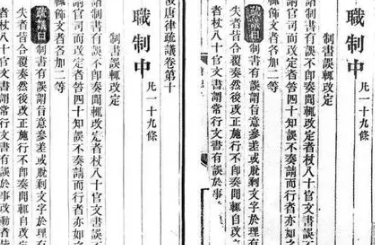 職制中 凡一十九條
制書誤輒改定
諸制書有誤不即奏聞輒改定者杖八十官文書誤不
請官司而改定者笞四十知誤不奏請而行者亦如
輒飾文者各加二等
疏議曰制書有誤謂旨意參差或脫剩文字於理有
失者皆合覆奏然後改正施行不即奏聞輒自改
者杖八十官文書謂常行文書有誤於事
唐律疏議卷第十
職制中 凡一十九條
制書誤輒改定
諸制書有誤不即奏聞輒改定者杖八十官文書誤
請官司而改定者笞四十知誤不奏請而行者亦如
輒飾文者各加二等
疏議曰制書有誤謂旨意參差或脫剩文字於理有
失者皆合覆奏然後改正施行不即奏聞輒自改定
者杖八十官文書謂常行文書有誤於事改動者